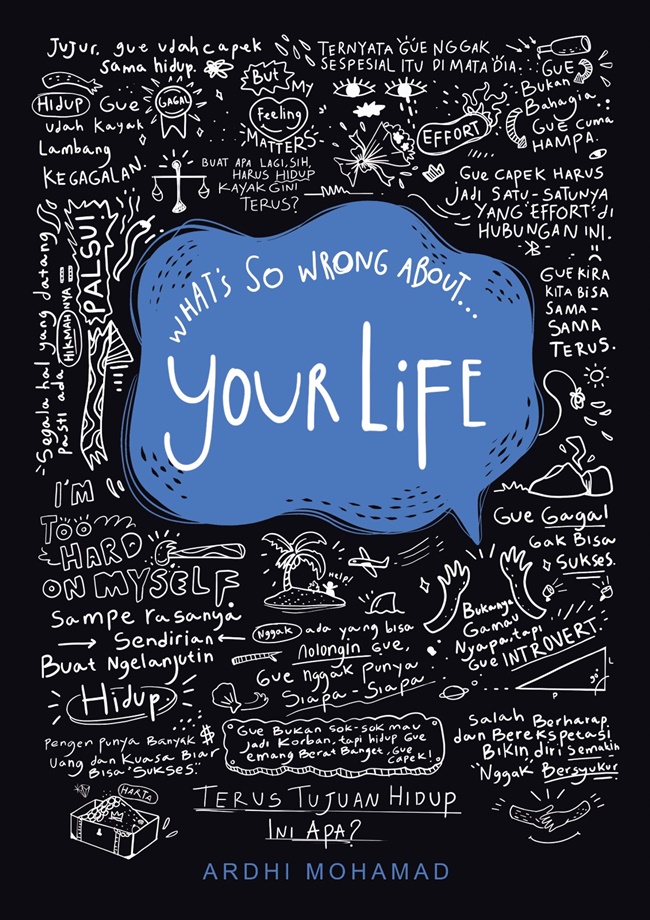 Jujur, gue udah capek
sama hidup.
TERNYATA GUE NGGAK
SESPESIAL ITU DI MATA DIA.
But My
feeling
MATTERS.
GuE
Bukan
Bahagia.
GUE CUMA
HAMPA.
HIDUP Gue
udah Kayak
Lambang
KEGAGALAN.
GAGAL
BUAT APA LAGI, SIH,
HARUS HIDUP
KAYAK GINI
TERUS?
EFFORT
GUE CAPEK HARUS
JADI SATU-SATUNYA
YANG "EFFORT" di
HUBUNGAN INI.
Segala hal yang datang
pasti ada HIKMAHNYA
PALSU!
GUE KIRA
KITA BISA
SAMA-
SAMA
TERUS.
WHAT'S SO WRONG ABOUT...
YOUR LIFE
I'M
TOO
HARD
ON MYSELF
Gue Gagal
Gak Bisa
SUKSES.
Help!
Sampe rasanya
Sendirian
Buat Ngelanjutin
Hidup.
Nggak ada yang bisa
nolongin Gue,
Gue nggak punya
Siapa-Siapa
Bukanya
Gamau
Nyapa, tapi
Gue INTROVERT.
90°
Pengen punya Banyak $
Uang dan Kuasa Biar
Bisa "SUKSES."
Gue Bukan sok-sok mau
Jadi Korban, tapi hidup Gue
emang Berat Banget, Gue
capek!
Salah Berharap
dan Berekspetasi
BIKIN diri Semakin
Nggak Bersyukur
HARTA
TERUS TUJUAN HIDUP
INI APA?
ARDHI MOHAMAD